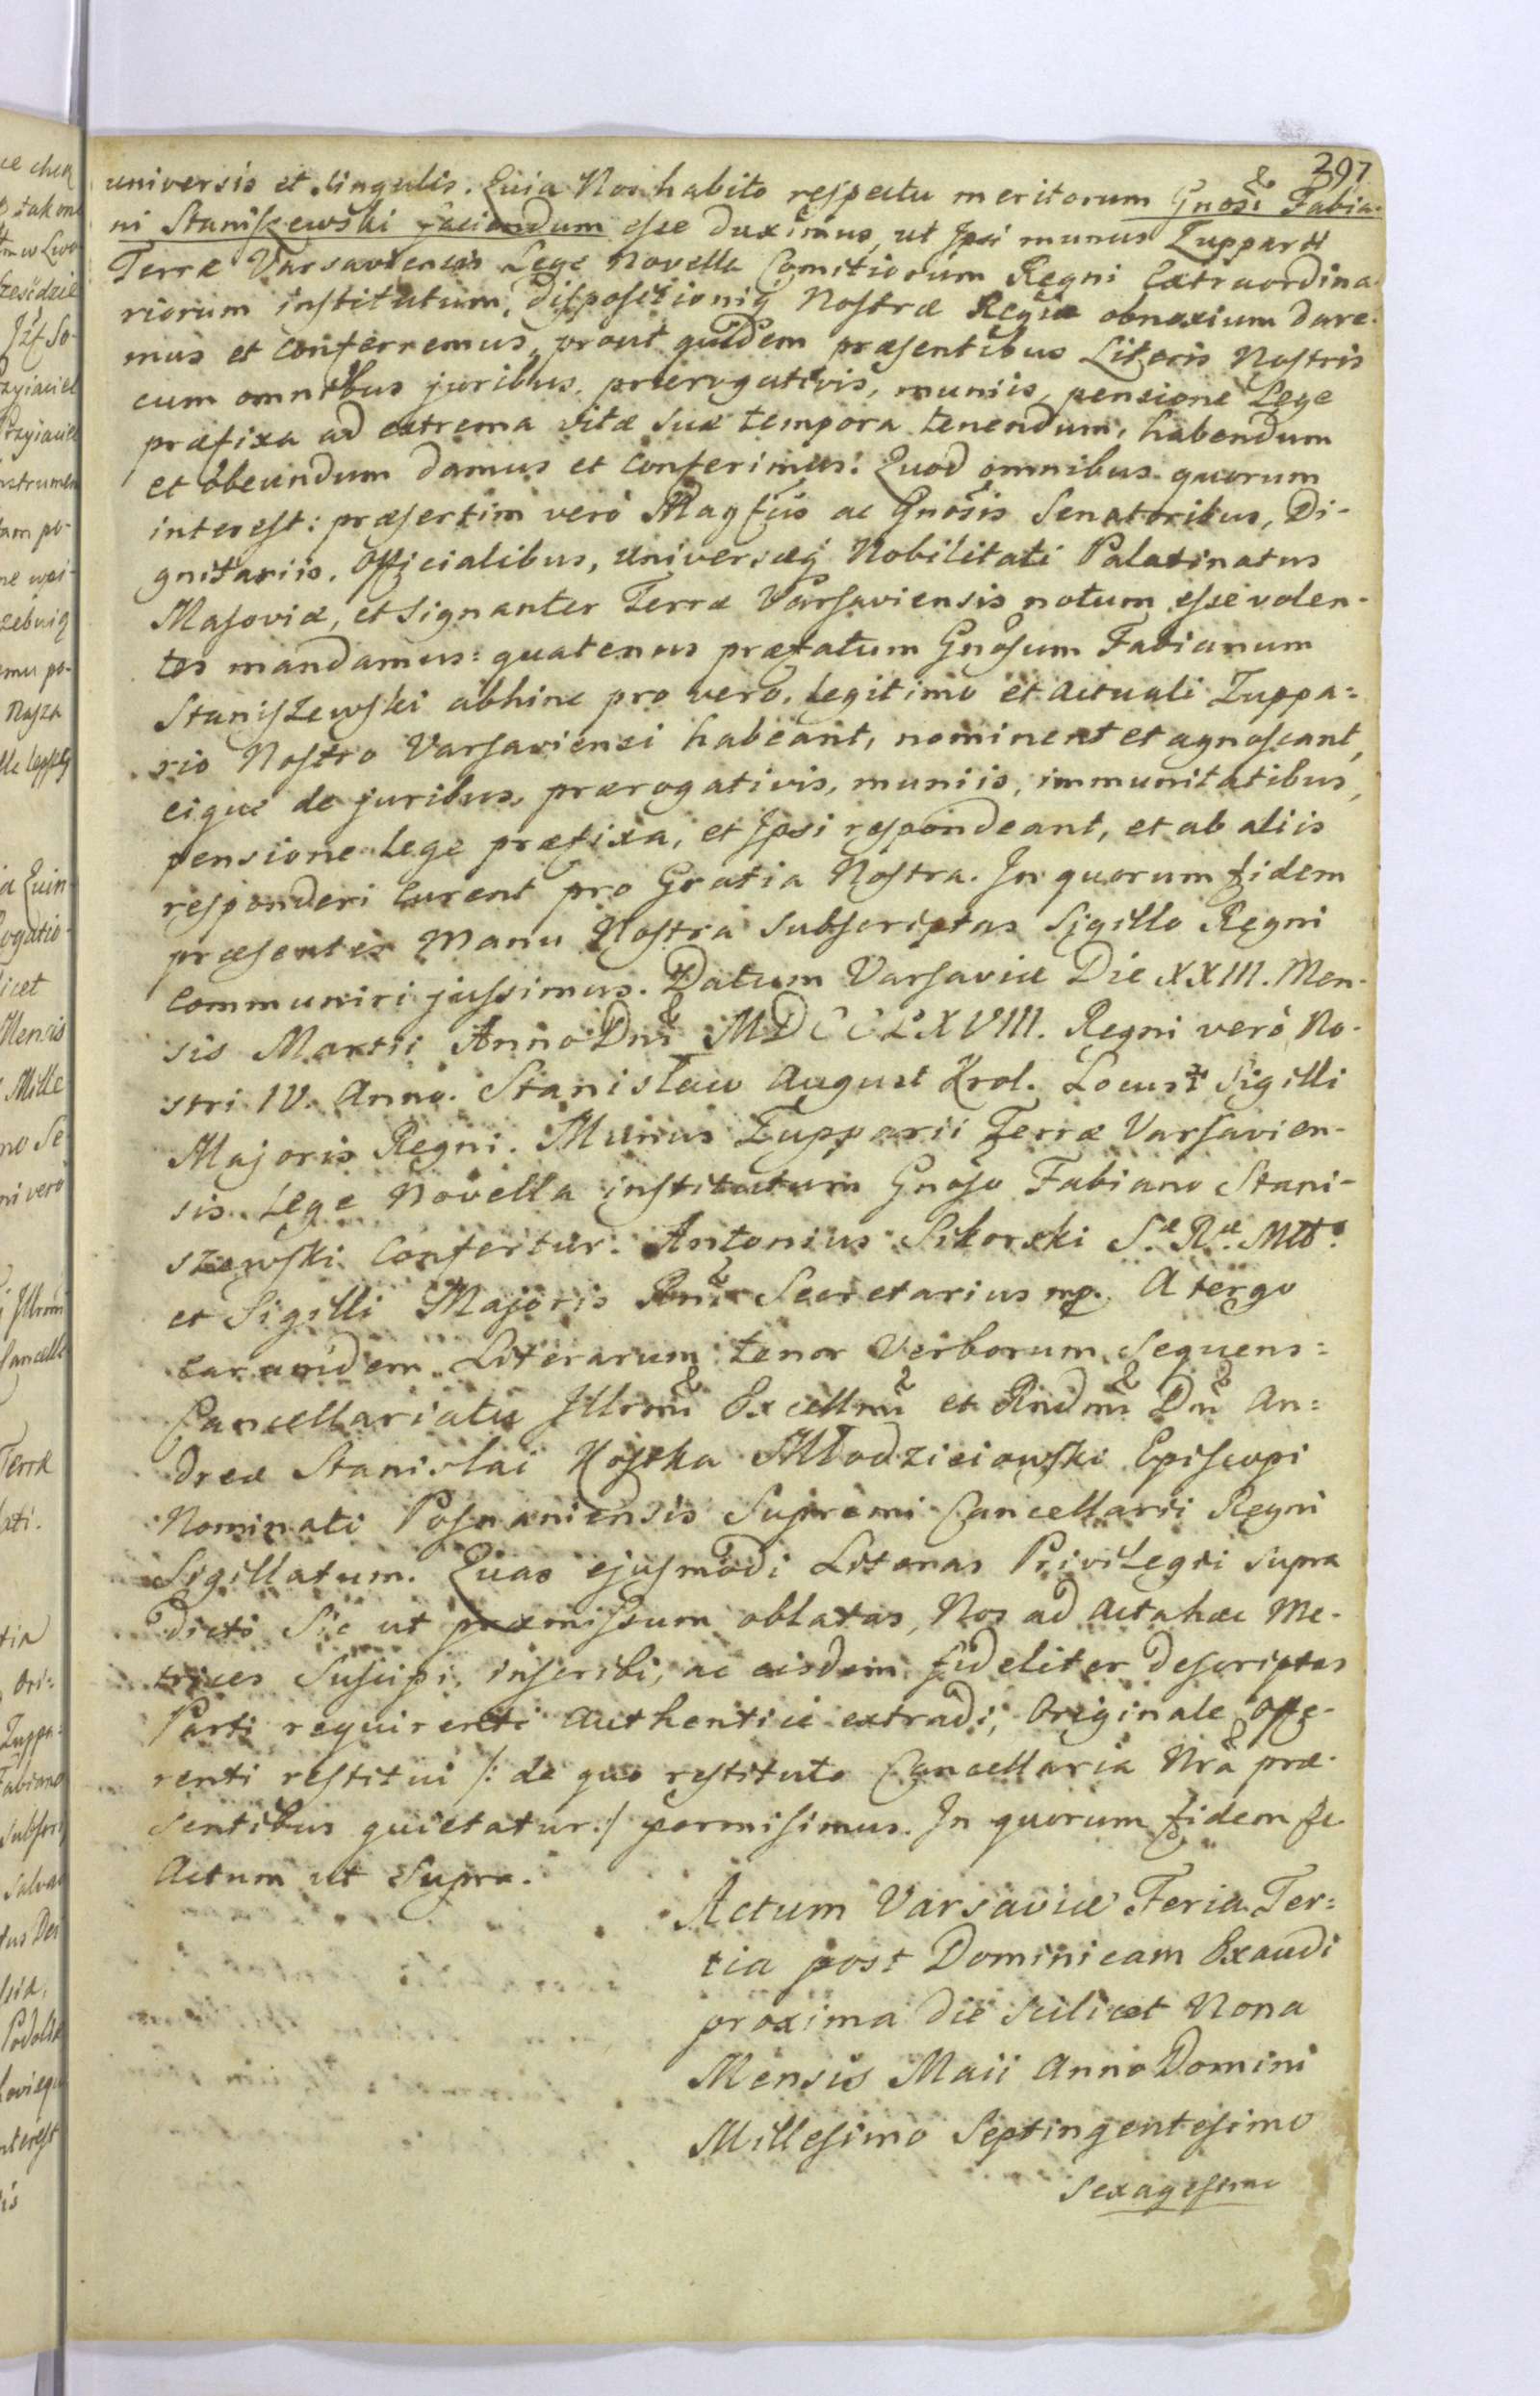 397
universis et singulis. Quia Nos habito respectu meritorum Gnosi Fabia-
ni Staniszewski faciendum esse duximus, ut Ipsi munus Zupparii
Terræ Varsaviensis Lege Novella Comitiorum Regni Extraordina-
riorum institutum, dispositioniq Nostræ Regiæ obnoxium dare-
mus et conferremus, prout quidem præsentibus Literis Nostris
cum omnibus juribus, prærogativis, muniis, pensione Lege
præfixa ad extrema vitæ suæ tempora tenendum, habendum
et obeundum damus et conferimus. Quod omnibus quorum
interest: præsertim verò Magfcis ac Gnosis Senatoribus, Di-
gnitariis, Officialibus, Universæq Nobilitati Palatinatus
Masoviæ, et signanter Terræ Varsaviensis notum esse volen-
tes mandamus: quatenus præfatum Gnosum Fabianum
Staniszewski abhinc pro vero, legitimo et actuali Zuppa=
rio Nostro Varsaviensi habeant, nominent et agnoscant,
eique de juribus, prærogativis, muniis, immunitatibus,
pensione lege præfixa, et Ipsi respondeant, et ab aliis
responderi curent pro Gratia Nostra. In quorum fidem
præsentes Manu Nostra subscriptas Sigillo Regni
communiri jussimus. Datum Varsaviæ Die XXIII. Men-
sis Martii Anno Dni MDCCLXVIII. Regni verò No-
stri IV. Anno. Stanisław August Krol. Locus Sigilli
Majoris Regni. Munus Zupparii Terræ Varsavien-
sis Lege Novella institutum Gnoso Fabiano Stani-
szewski confertur. Antonius Sikorski S. R. Mtis
et Sigilli Majoris Rni Secretarius mp. A tergo
earumdem Literarum tenor Verborum sequens:
Cancellariatu Illrmi Excellmi et Rndmi Dni An=
dreæ Stanislai Kostka Młodzieiowski Episcopi
Nominati Posnaniensis Supremi Cancellarii Regni
Sigillatum. Quas ejusmodi Literas Privilegii supra
dicti sic ut præmissum oblatas, Nos ad Acta hæc Me-
trices suscipi, inscribi, ac eisdem fideliter descriptas
Parti requirenti authenticè extradi, Originale offe-
renti restitui /: de quo restituto Cancellaria Nra præ-
sentibus quietatur :/ permisimus. In quorum fidem &c
Actum ut Supra.
Actum Varsaviæ Feria Ter=
tia post Dominicam Exaudi
proxima die scilicet Nona
Mensis Maii Anno Domini
Millesimo Septingentesimo
sexagesimo